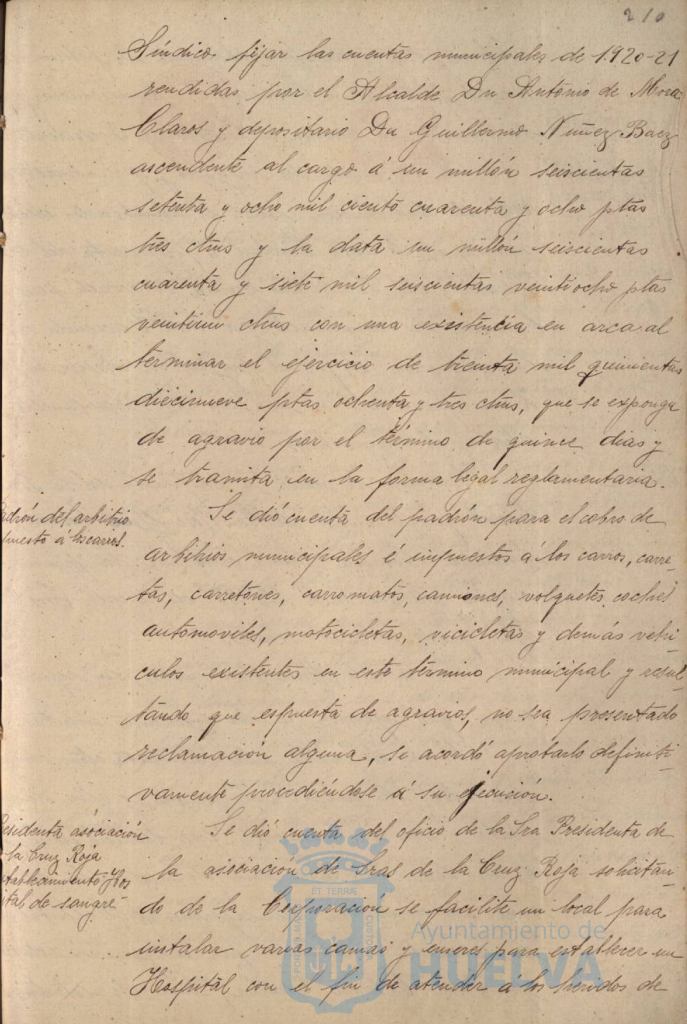 210
Síndico fijar las cuentas municipales de 1920-21
rendidas por el Alcalde Dn Antonio de Mora
Claros y depositario Dn Guillermo Nuñez Baez
ascendente al cargo á un millón seiscientas
setenta y ocho mil ciento cuarenta y ocho ptas
tres ctms y la data un millón seiscientas
cuarenta y siete mil seiscientas veintiocho ptas
veintiun ctms con una existencia en arca al
terminar el ejercicio de treinta mil quinientas
diecinueve ptas ochenta y tres ctms, que se exponga
de agravio por el término de quince dias y
se tramita en la forma legal reglamentaria.
adrón del arbitrio
puesto á los carros.
Se dió cuenta del padrón para el cobro de
arbitrios municipales é impuestos á los carros, carre-
tas, carretones, carromatos, camiones, volquetes, coches
automoviles, motocicletas, vicicletas y demás vehi-
culos existentes en este término municipal y resul-
tando que espuesta de agravios, no sea presentado
reclamación alguna, se acordó aprobarlo definiti-
vamente procediéndose á su ejecución.
esidenta asociación
la Cruz Roja
tablecimiento Hos
ital de sangre
Se dió cuenta del oficio de la Sra Presidenta de
la asociación de Sras de la Cruz Roja solicitan-
do de la Corporación se facilite un local para
instalar varias camas y enseres para establecer un
Hospital con el fin de atender á los heridos de
Ayuntamiento de
HUELVA